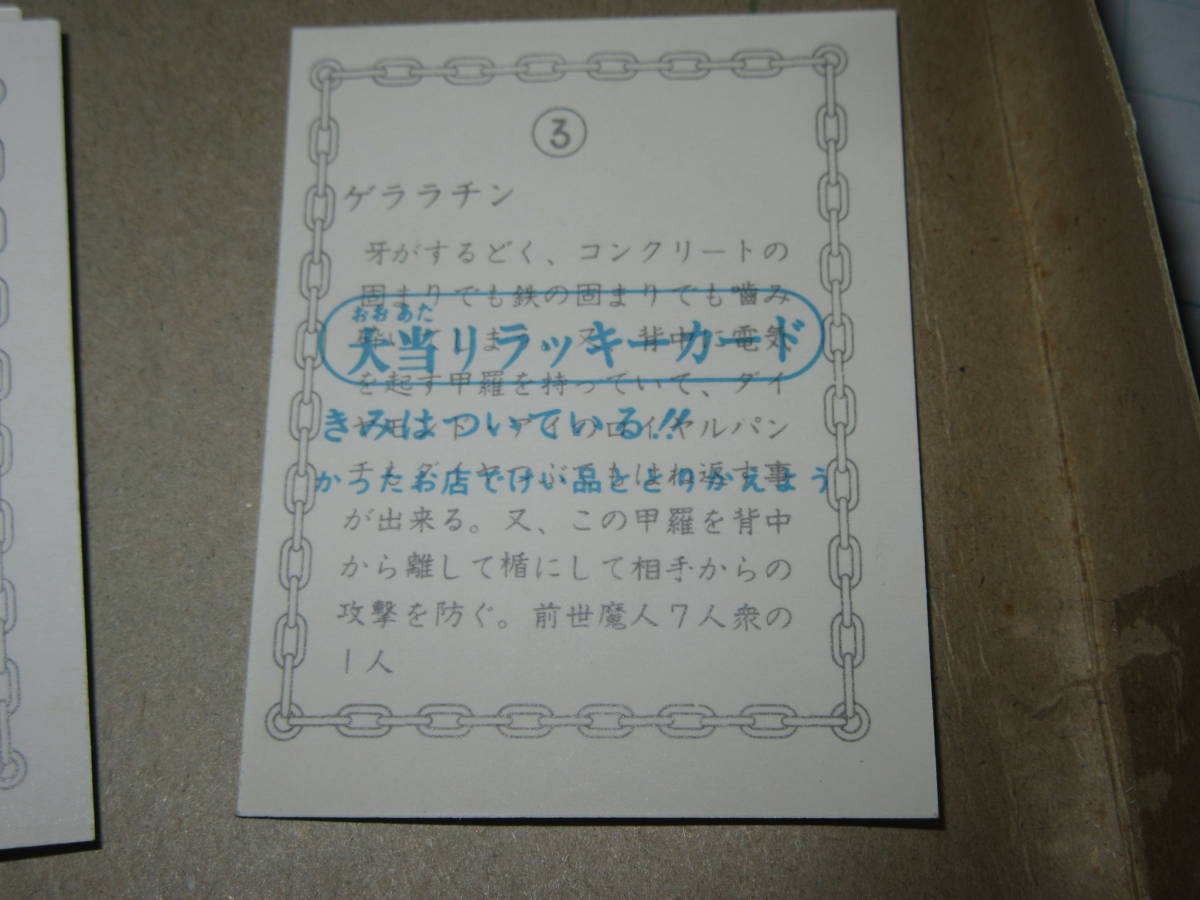 ③
ゲララチン
牙がするどく、コンクリートの
固まりでも鉄の固まりでも噛み
砕いてしまう。又、背中に電気
を起す甲羅を持っていて、ダイ
ヤモンド・アイのロイヤルパン
チもダイヤつぶてもはね返す事
が出来る。又、この甲羅を背中
から離して楯にして相手からの
攻撃を防ぐ。前世魔人7人衆の
1人
おおあた
大当りラッキーカード
きみはついている!!
かったお店でけい品ととりかえよう